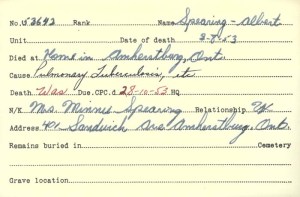 No. U 3642 Rank Name Spearing - Albert
Unit Date of death 2-8-53
Died at Home in Amherstburg, Ont.
Cause Pulmonary Tuberculosis, etc
Death Was Due. CPC. d. 28-10-53 HQ
N/K Mrs. Minnie Spearing Relationship W
Address Sandwich Ave Amherstburg, Ont.
Remains buried in Cemetery
Grave location